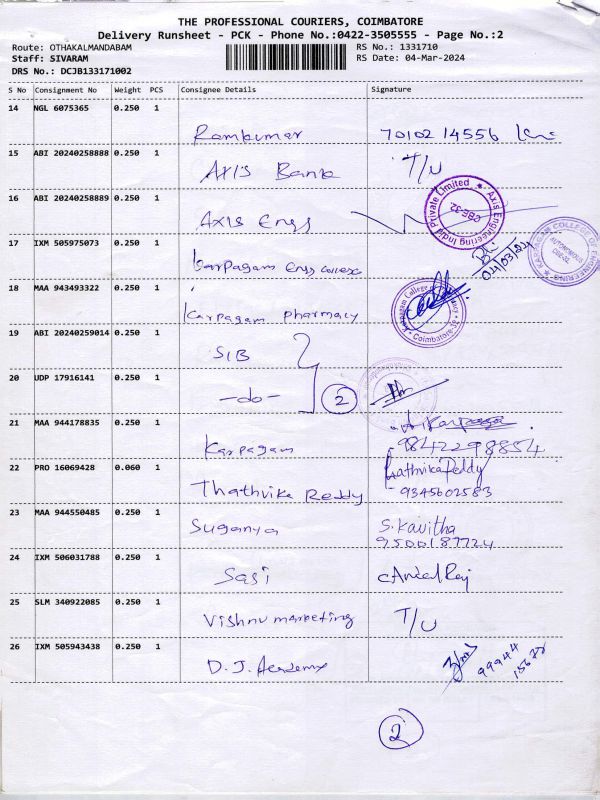 THE PROFESSIONAL COURIERS, COIMBATORE
Delivery Runsheet - PCK - Phone No.:0422-3505555 - Page No.:2
Route: OTHAKALMANDABAM
Staff: SIVARAM
DRS No.: DCJB133171002
RS No.: 1331710
RS Date: 04-Mar-2024
S No Consignment No Weight PCS Consignee Details Signature
14 NGL 6075365 0.250 1 Ramkumar 7010214556
15 ABI 20240258888 0.250 1 Axis Bank T/U
16 ABI 20240258889 0.250 1 Axis Engg
Axis Engineering India Private Limited ★ CBE-32
17 IXM 505975073 0.250 1 Karpagam Engg College 04/03/24
KARPAGAM COLLEGE OF ENGINEERING AUTONOMOUS
18 MAA 943493322 0.250 1 Karpagam pharmacy
Karpagam College of Pharmacy Coimbatore-32
19 ABI 20240259014 0.250 1 SIB
20 UDP 17916141 0.250 1 -do- 2
21 MAA 944178835 0.250 1 Karpagam 9842298854
22 PRO 16069428 0.060 1 Thathvika Reddy 9345602583
23 MAA 944550485 0.250 1 Suganya S. Kavitha
9500187724
24 IXM 506031788 0.250 1 Sasi
25 SLM 340922085 0.250 1 Vishnu marketing T/U
26 IXM 505943438 0.250 1 D.J. Academy 99944
2